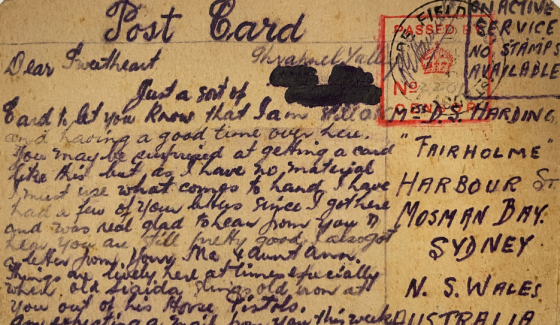 Post Card
ON ACTIVE
SERVICE
NO STAMPS
AVAILABLE
FIELD
PASSED BY
No
CENSOR
Shrapnel Valley
Dear Sweetheart
Just a sort of
Card to let you know that I am still O.K
and having a good time over here.
You may be surprised at getting a card
like this but as I have no material
I must use what comes to hand, I have
had a few of your letters since I got here
and was real glad to hear from you &
hear you are still pretty good, I also got
a letter from your Ma & Aunt Ann.
Things are lively here at times especially
when old slings old iron at
you out of his Horse Pistols.
Am expecting a mail from you this week
Mrs D.S. HARDING,
"FAIRHOLME"
HARBOUR ST
MOSMAN BAY.
SYDNEY
N. S. WALES
AUSTRALIA